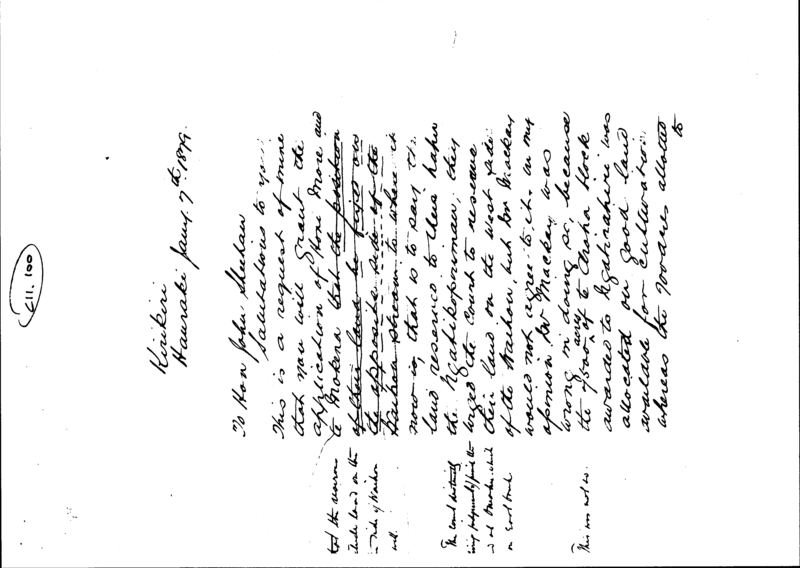 611. 100
Kirikiri
Hauraki Jany. 7th 1879.
To Hon John Sheehan
Salutations to you.
This is a request of mine
that you will grant the
application of Hoani More and
to Mokena that the position
of their land be fixed on
the opposite side of the
Waihou stream to where it
now is, that is to say the
land reserved to their hapu
the Ngatikopirimau, they
urged the Court to reserve
their land on the west side
of the Waihou, but Mr Mackay
would not agree to it. In my
opinion Mr Mackay was
wrong in doing so, because
the 7500 acres of Aroha block
awarded to Ngatirahiri was
allocated on good land
available for cultivation
whereas the Moraes allotted
to
the reserve
land on the
side of Waihou
The Court distinctly
is at Omahu which
on good land
This was not so.